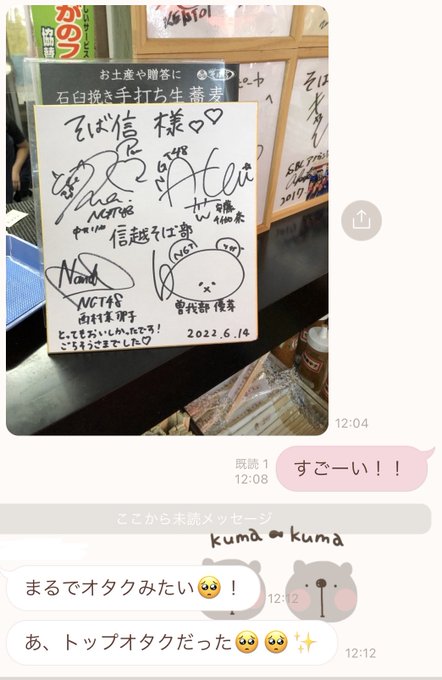 いサービス
がのフ
協賛
お土産や贈答に
石臼挽き手打ち生蕎麦
そば信 様♡♡
NGT48
信越そば部
NGT
NGT48
西村菜那子
曽我部 優芽
とってもおいしかったです!
ごちそうさまでした♡
2022.6.14
そば
2017
12:04
既読 1
12:08
すごーい!!
ここから未読メッセージ
kuma kuma
まるでオタクみたい🥺!
12:12
あ、トップオタクだった🥺🥺✨
12:12